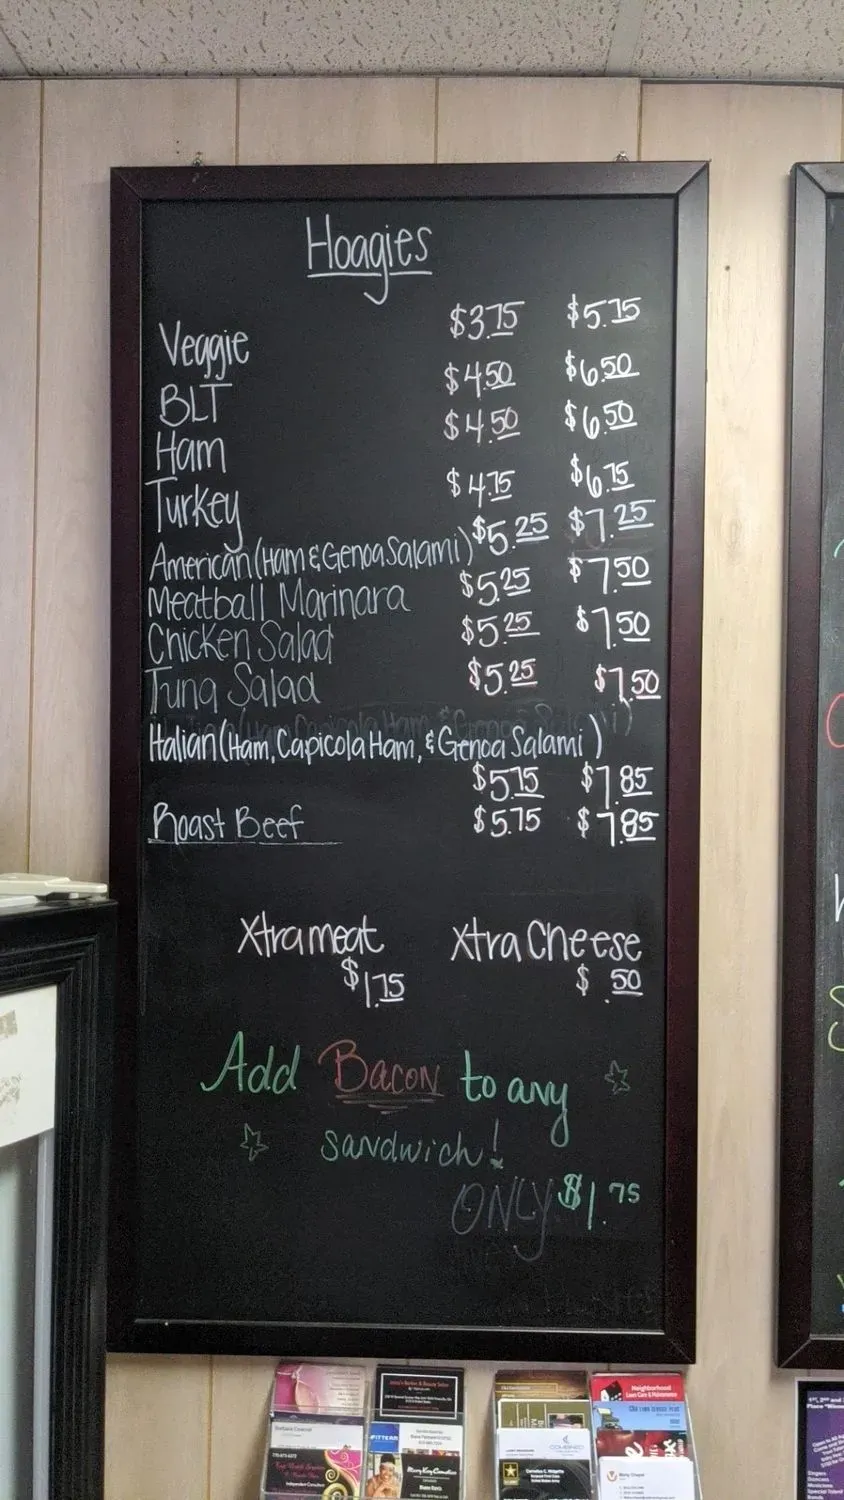 Hoagies
Veggie $3.75 $5.75
BLT $4.50 $6.50
Ham $4.50 $6.50
Turkey $4.75 $6.75
American (Ham & Genoa Salami) $5.25 $7.25
Meatball Marinara $5.25 $7.50
Chicken Salad $5.25 $7.50
Tuna Salad $5.25 $7.50
Italian (Ham, Capicola Ham, & Genoa Salami)
$5.75 $7.85
Roast Beef $5.75 $7.85
Xtra meat Xtra Cheese
$1.75 $.50
Add Bacon to any
sandwich!
ONLY $1.75
Neighborhood
Mary Kay Cosmetics